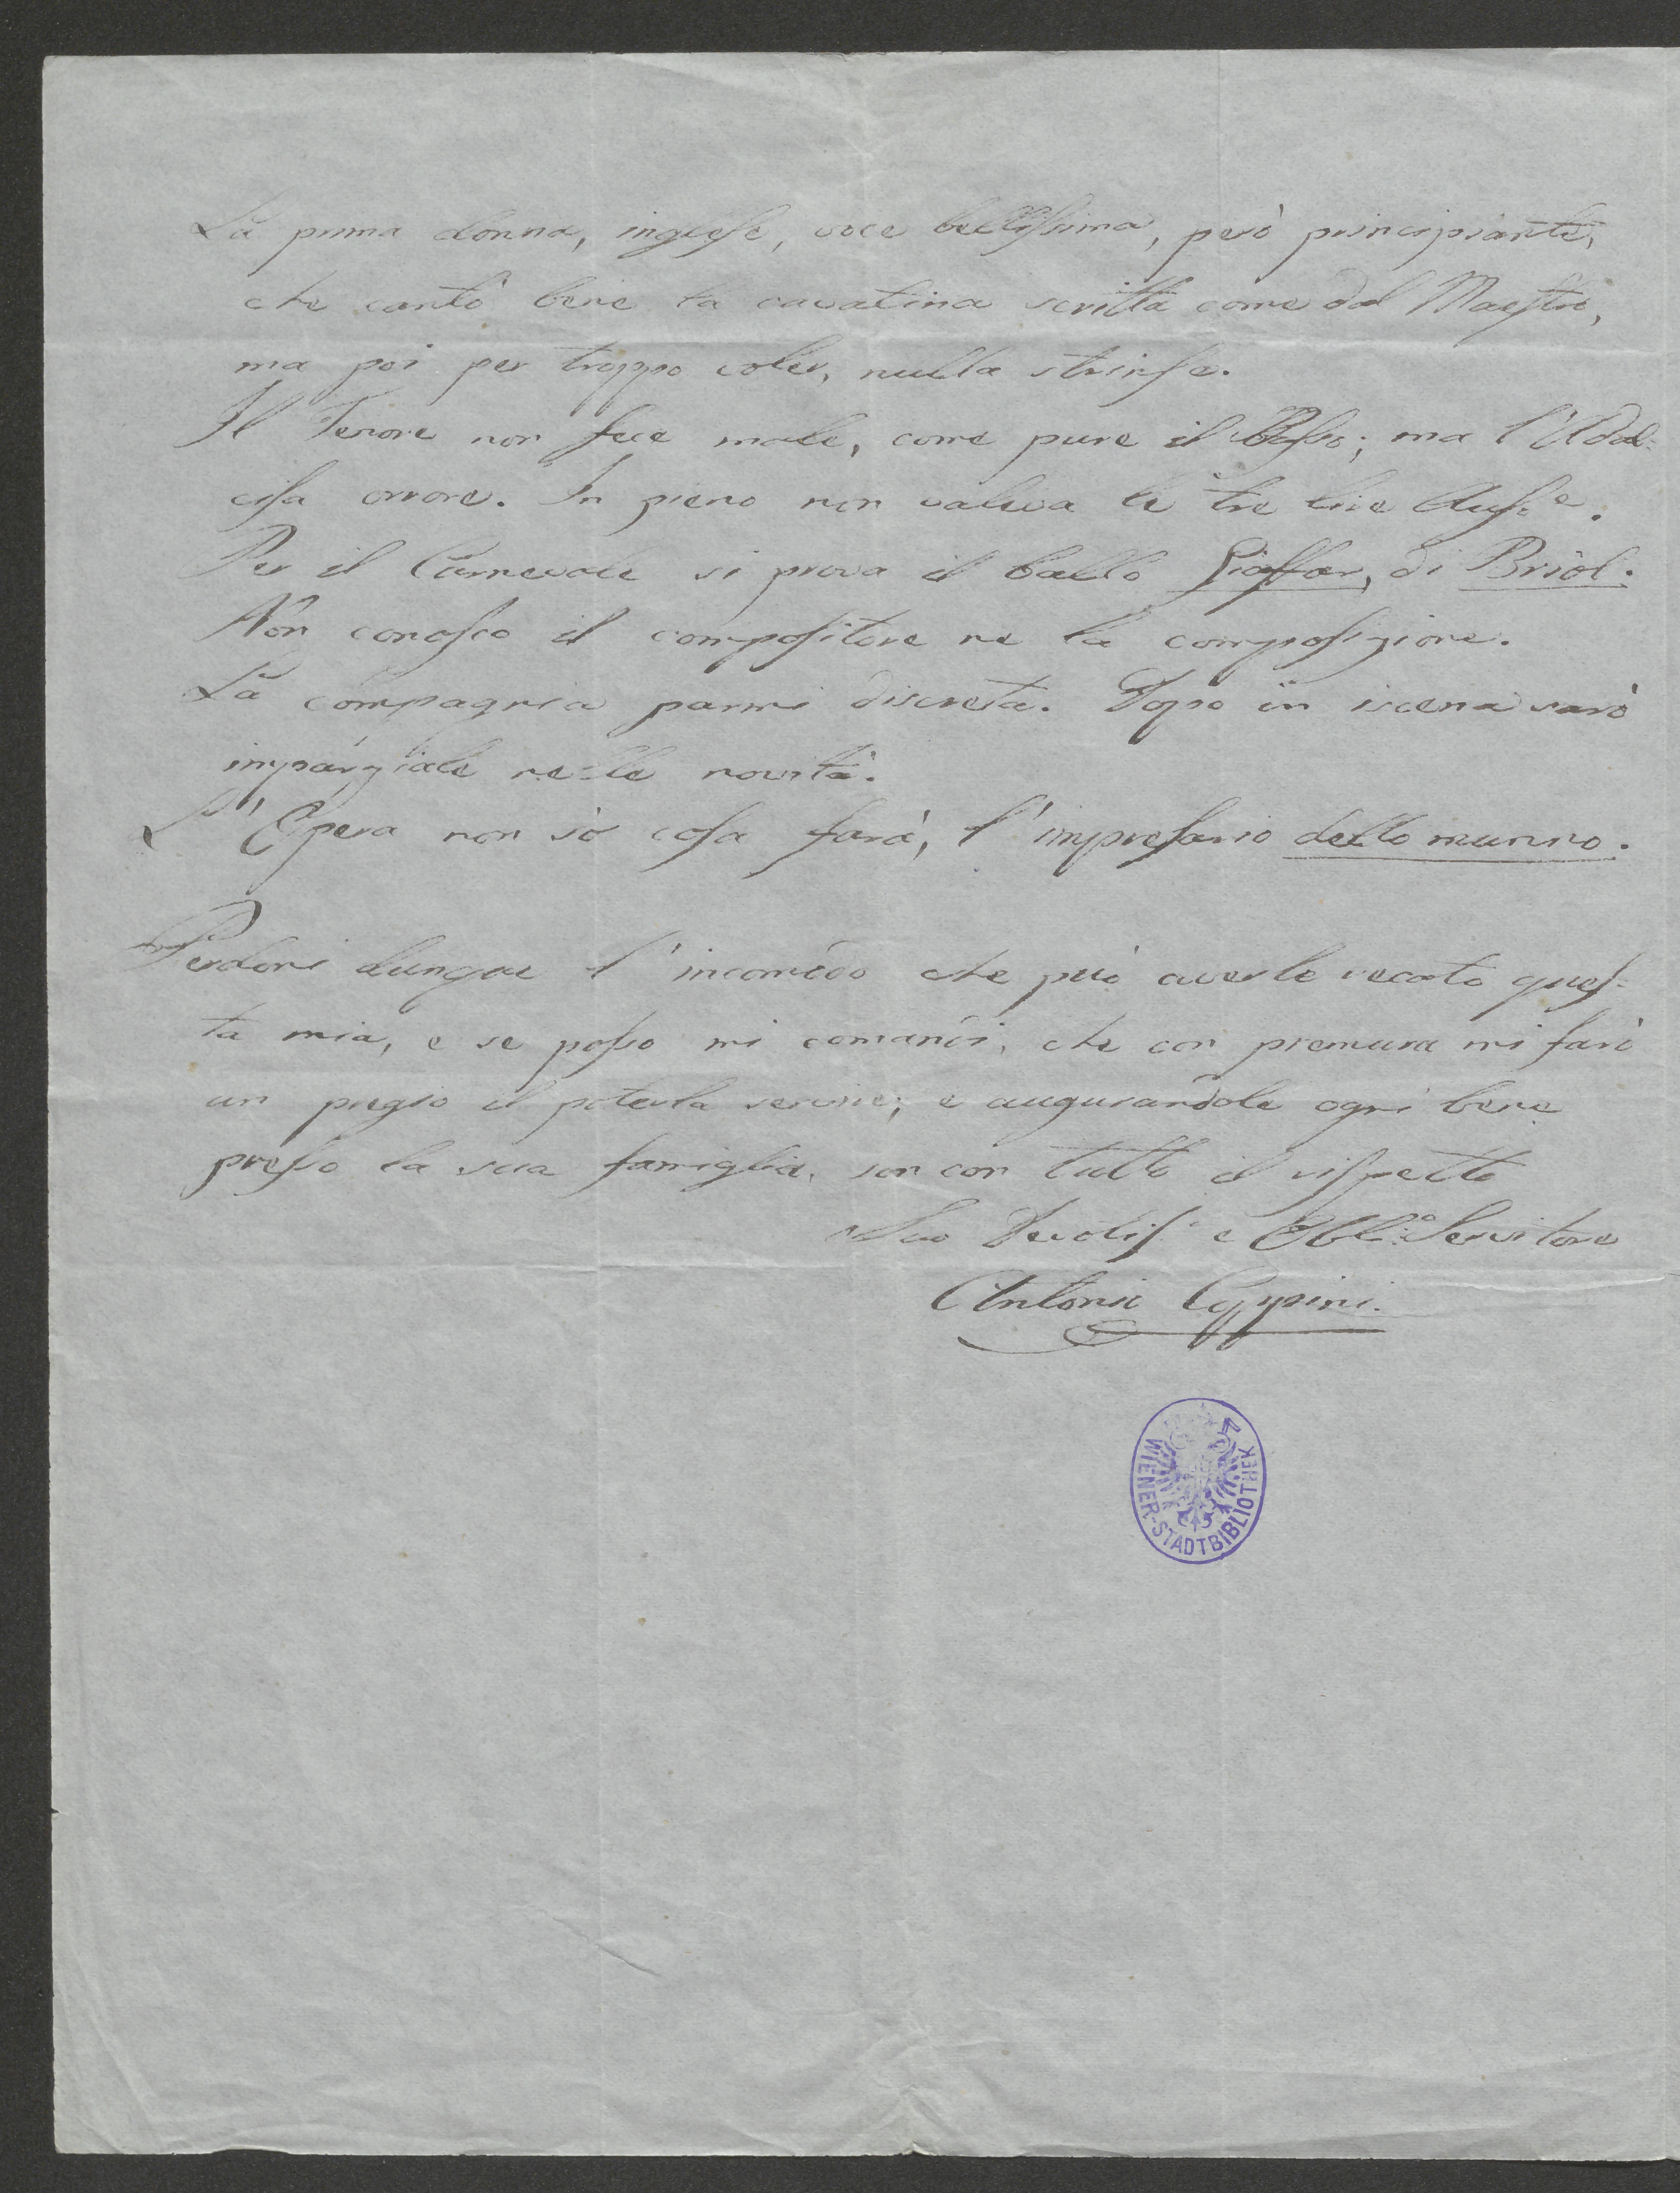 La prima donna, inglese, voce bellissima, però principiante,
che cantò bene la cavatina scritta come dal Maestro,
ma poi per troppo voler, nulla strinse.
Il Tenore non fece male, come pure il Basso; ma l'Adal=
cisa orrore. In pieno non valeva le tre lire Aus.e.
Per il Carnevale si prova il ballo Giaffar, di Briol.
Non conosco il compositore ne la composizione.
La compagnia parmi discreta. Dopo in iscena sarò
imparziale nelle novità.
L'Opera non sò cosa farà, l'impresario dello munno.
Perdoni dunque l'incomodo che può averle recato ques=
ta mia, e se posso mi comandi, che con premura mi farò
un pregio il poterla servire; e augurandole ogni bene
presso la sua famiglia, son con tutto il rispetto
Suo Devotis. e Obl:o Servitore
Antonio Coppini.
WIENER-STADTBIBLIOTHEK